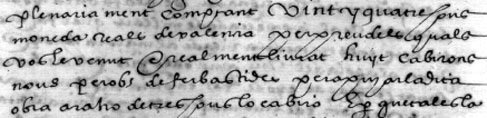 plenariament comptant vint y quatre sous
moneda reals de valencia per preu dels quals
vos he venut E realment liurat huyt cabirons
nous per obs de fer bastides per a pujar la dita
obra a raho de tres sous lo cabiro E per que tal es la